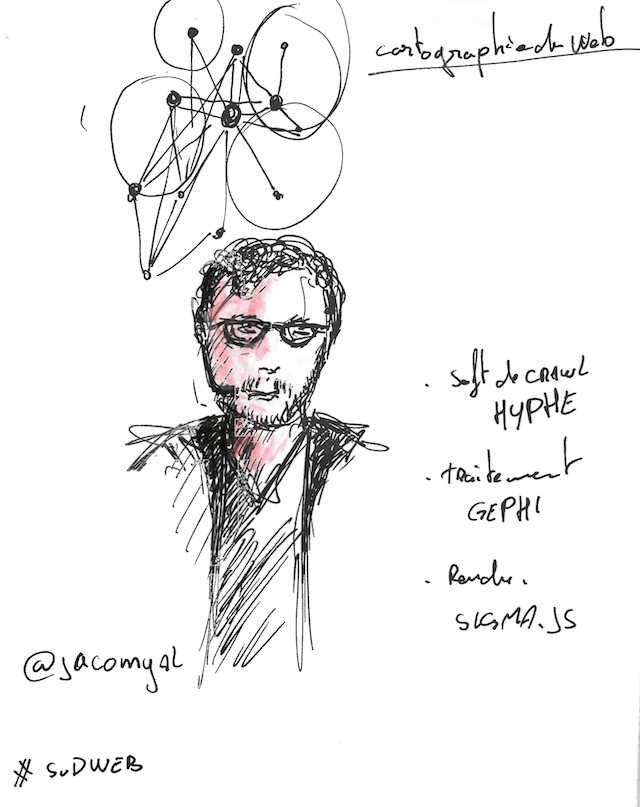 cartographie du web
. Soft de CRAWL
HYPHE
. traitement
GEPHI
. Rendu.
SIGMA.JS
@jacomyal
# SUDWEB